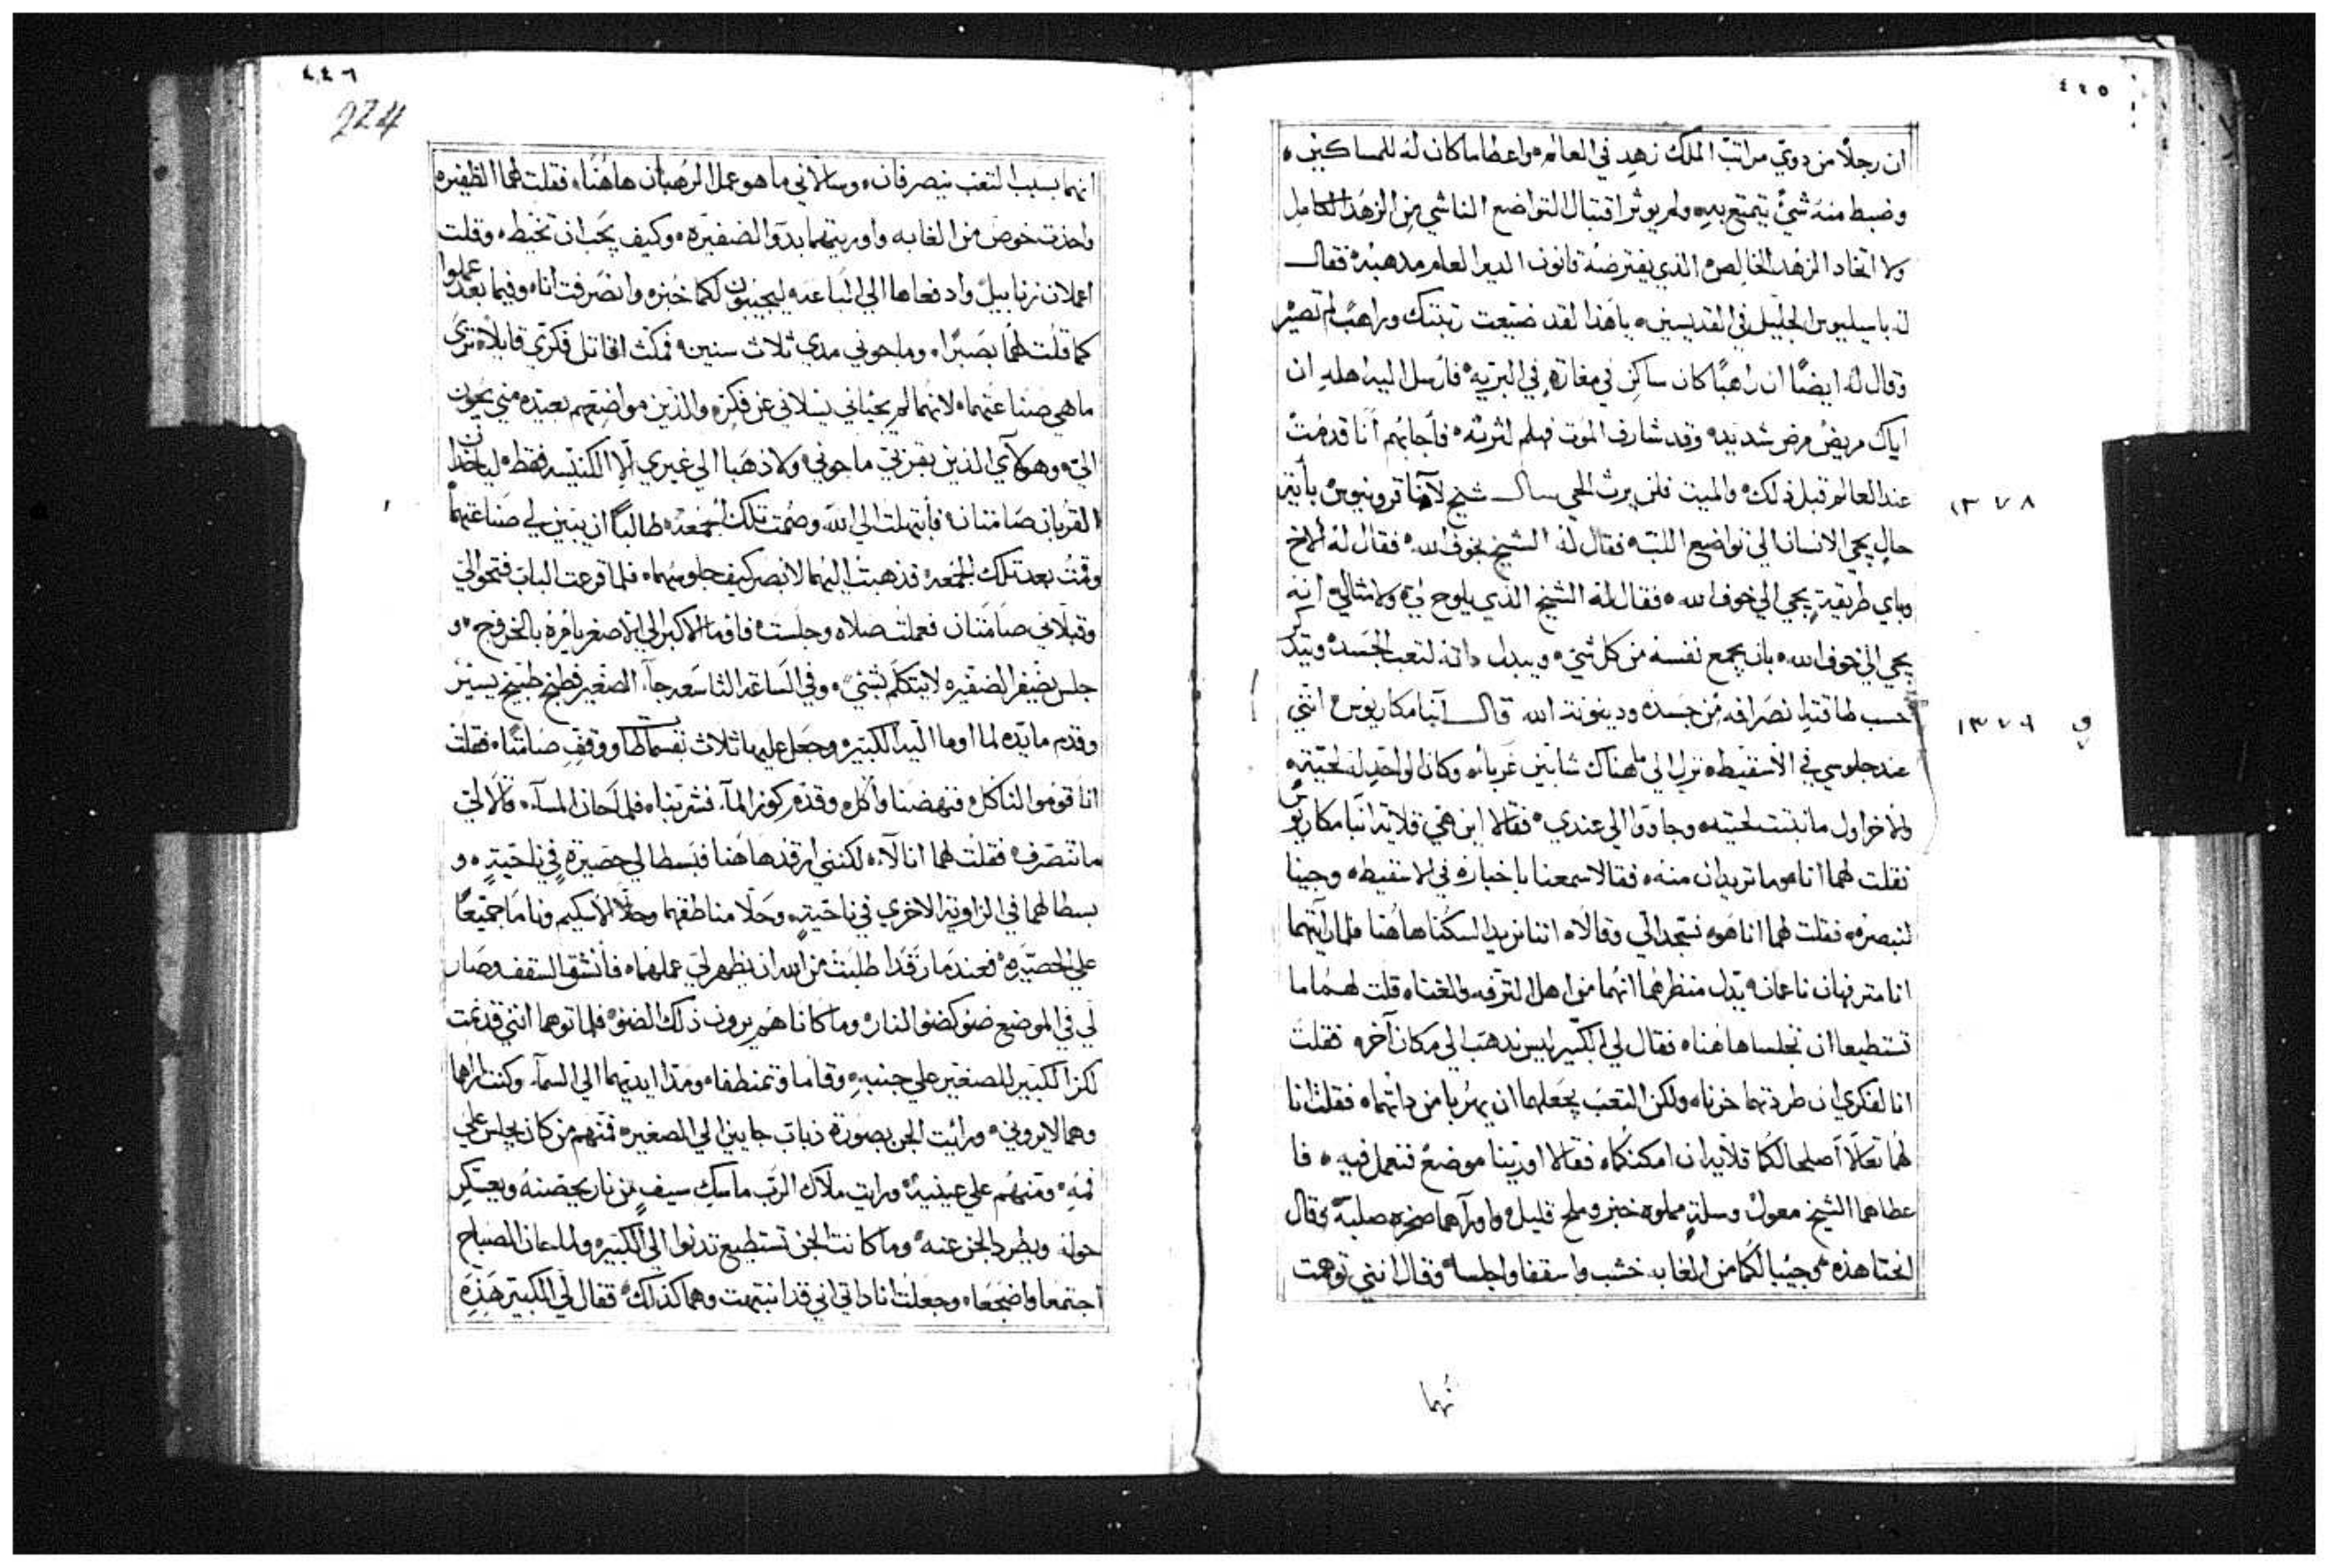 ٤٤٥
ان رجلًا من دوي مراتب الملك زهد في العالم واعطا ما كان له للمساكين
وضبط منه شيُ يتمتع بيه ولم يوثر اقتبال التواضع الناشي من الزهد الكامل
ولا اتخاد الزهد الخالص الذي يفترضه قانون الدير العام مدهبه فقال
له باسيليوس الجليل في القديسين ياهذا لقد ضيعت رتبتك وراهب لم تصير
وقال له ايضًا ان راهبًا كان ساكن في مغارة في البرية فأرسل اليه اهله ان
اباك مريض مرض شديد وقد شارف الموت فهلم لترثه فأجابهم أنا قدمت
عند العالم قبل ذلك والميت فلن يرث الحي سال شيخ لآنبا قرونيوس بأية
١٣٧٨
حال يجي الانسان الي تواضع اللب فقال له الشيخ بخوف الله فقال له الاخ
وباي طريقة يجي الي خوف الله فقال له الشيخ الذي يلوح لي ولامثالي انه
يجي الي خوف الله بان يجمع نفسه من كل شي ويبدل داته لتعب الجسد ويتدكر
حسب طاقته انصرافه من جسده ودينونة الله قال آنبا مكاريوس انني
١٣٧٩
عند جلوسي في الاسقيط نزل الي ماهناك شابين غربا وكان الواحد له لحية
والاخر اول ما نبتت لحيته وجاووا الي عندي فقالا اين هي قلاية انبا مكاريوس
فقلت لهما انا هو ما تريدان منه فقالا سمعنا باخباره في الاسقيط وجينا
لنبصره فقلت لهما انا هو فسجدا لي وقالا اننا نريد السكنا هاهنا فلما رآيتهما
انا مترفهان ناعمان يدل منظرهما انهما من اهل الترفه والغنا قلت لهما ما
تستطيعا ان تجلسا هاهنا فقال لي الكبير ايس ندهب الي مكان آخر فقلت
انا لفكري ان طردتهما حزنا ولكن التعب يجعلهما ان يهربا من داتهما فقلت انا
لهما تعالا أصلحا لكما قلايه ان امكنكما فقالا اورينا موضع فنعمل فيه فا
عطاهما الشيخ معول وسلة مملوه خبز وملح قليل واوراهما صخره صلبة وقال
انحتا هذه وجيبا لكما من الغابه خشب واسقفا واجلسا وقال انني توهمت
نهما
٤٤٦
224
انهما بسبب التعب ينصرفان وسالاني ما هو عمل الرهبان هاهنا فقلت لهما الظفيره
واخذت خوص من الغابه واوريتهما بدوّ الضفيره وكيف يجب ان تخيط وقلت
اعملان زنابيل وادفعاها الي الباعه ليجيبون لكما خبز وانصرفت انا وفيما بعد عملوا
كما قلت لهما بصبرا وما جوني مدي ثلاث سنين فمكثت اقاتل فكري قايلا تري
ما هي صناعتهما لانهما لم يجياني يسلاني عن فكر والذين مواضعهم بعيده مني يجون
الي وهولآي الذين بقربي ما جوني ولا ذهبا الي غيري الا الكنيسه فقط لياخدان
القربان صامتان فأبتهلت الي الله وصمت تلك الجمعه طالبًا ان يبين لي صناعتهما
وقمت بعد تلك الجمعه فذهبت اليهما لابصر كيف جلوسهما فلما قرعت الباب فتحوا لي
وقبلاني صامتان فعملت صلاه وجلست فاوما الاكبر الي الاصغر يأمره بالخروج و
جلس يضفر الضفيره لا يتكلم بشي وفي الساعه التاسعه جآ الصغير فطبخ طبيخ يسير
وقدم مايده لما اوما اليه الكبير وجعل عليها ثلاث بقسماطا ووقف صامتًا فقلت
انا قوموا لناكل فنهضنا واكل وقدم كوز المآ فشربنا فلما حان المسآ قالا لي
ما تنصرف فقلت لهما انا لآ لكنني ارقد هاهنا فبسطا لي حصيرة في ناحية و
بسطا لهما في الزاوية الاخري في ناحية وحلا مناطقهما وحلا الاسكيم وناما جميعًا
علي الحصيره فعند ما رقدا طلبت من الله ان يظهر لي عملهما فأنشق السقف وصار
لي في الموضع ضو كضو النار وما كانا هم يرون ذلك الضو فلما توهما انني قد نمت
لكز الكبير للصغير علي جنبه وقاما وتمنطقا ومدا ايديهما الي السمآ وكنت اراهما
وهما لا يروني ورائت الجن بصورة ذباب جايين الي الصغير فمنهم من كان يجلس علي
فمه ومنهم علي عينيه ورايت ملاك الرب ماسك سيف من نار يحصنه ويعسكر
حوله ويطرد الجن عنه وما كانت الجن تستطيع تدنوا الي الكبير ولما حان الصباح
اجتمعا واضجعا وجعلت انا داتي اني قد انتبهت وهما كذلك فقال لي الكبير هذه